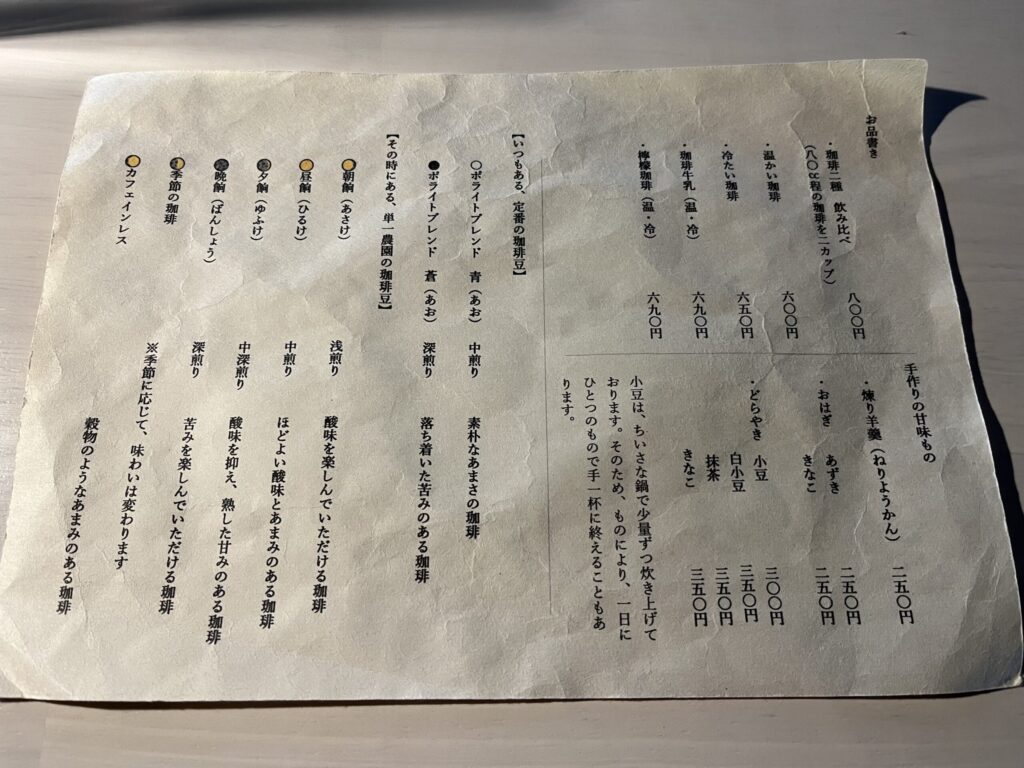 お品書き
・珈琲二種　飲み比べ
（八〇cc程の珈琲を二カップ）　八〇〇円
・温かい珈琲　六〇〇円
・冷たい珈琲　六五〇円
・珈琲牛乳（温・冷）　六九〇円
・檸檬珈琲（温・冷）　六九〇円
手作りの甘味もの
・煉り羊羹（ねりようかん）　二五〇円
・おはぎ　あずき　二五〇円
きなこ　二五〇円
・どらやき　小豆　三〇〇円
白小豆　三五〇円
抹茶　三五〇円
きなこ　三五〇円
小豆は、ちいさな鍋で少量ずつ炊き上げて
おります。そのため、ものにより、一日に
ひとつのもので手一杯に終えることもあ
ります。
【いつもある、定番の珈琲豆】
○ポライトブレンド　青（あお）　中煎り　素朴なあまさの珈琲
●ポライトブレンド　蒼（あお）　深煎り　落ち着いた苦みのある珈琲
【その時にある、単一農園の珈琲豆】
朝餉（あさけ）　浅煎り　酸味を楽しんでいただける珈琲
昼餉（ひるけ）　中煎り　ほどよい酸味とあまみのある珈琲
夕餉（ゆふけ）　中深煎り　酸味を抑え、熟した甘みのある珈琲
晩餉（ばんしょう）　深煎り　苦みを楽しんでいただける珈琲
季節の珈琲　※季節に応じて、味わいは変わります
カフェインレス　穀物のようなあまみのある珈琲